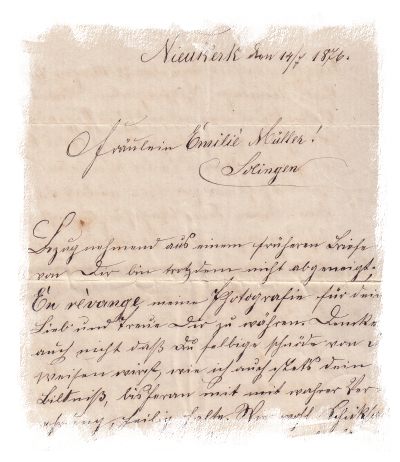 Nieukerk den 14/7 1876.
Fräulein Emilié Müller!
Solingen
Bezugnehmend aus einem früheren Briefe
von Dir bin trotzdem nicht abgeneigt,
En révange meine Photografie für dein
Lieb und Treue Dir zu währen. Denke
auch nicht daß du selbige schnöde von d
weisen wirst, wie ich auch stets dein
Bildniß, bisheran mit mit wahrer Ver
ehrung, heilig halte. Wie wohl Schick